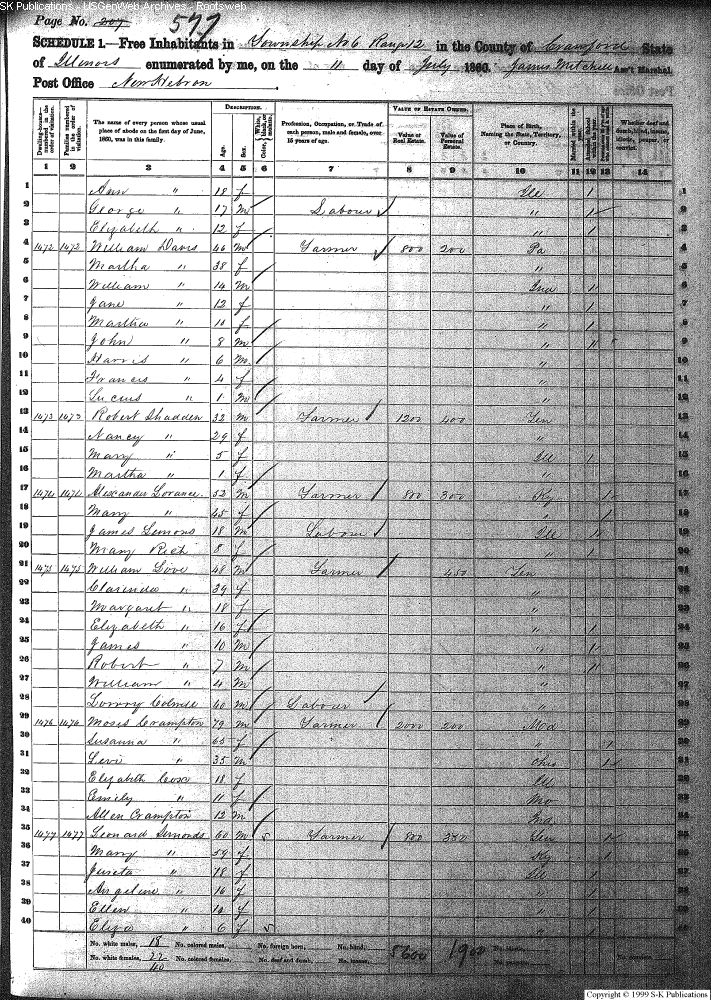 SK Publications - USGenWeb Archives - Rootsweb
Page No. 207 577
SCHEDULE 1.—Free Inhabitants in Township No 6 Range 12 in the County of Crawford State
of Illinois enumerated by me, on the 11 day of July 1860. James Mitchell Ass't Marshal.
Post Office New Hebron
Dwelling-houses—numbered in the order of visitation. Families numbered in the order of visitation. The name of every person whose usual place of abode on the first day of June, 1860, was in this family. DESCRIPTION. Age. Sex. Color, White, black, or mulatto. Profession, Occupation, or Trade of each person, male and female, over 15 years of age. VALUE OF ESTATE OWNED. Value of Real Estate. Value of Personal Estate. Place of Birth, Naming the State, Territory, or Country. Married within the year. Whether deaf and dumb, blind, insane, idiotic, pauper, or convict.
1 2 3 4 5 6 7 8 9 10 11 12 13 14
1 Ann " 18 f Ill 1 1
2 George " 17 m Labour " 1 2
3 Elizabeth " 12 f " 1 3
4 1472 1472 William Davis 46 m Farmer 800 200 Pa 4
5 Martha " 38 f " 5
6 William " 14 m Ind 1 6
7 Jane " 12 f " 1 7
8 Martha " 10 f " 1 8
9 John " 8 m " 1 9
10 Harris " 6 m " 10
11 Francis " 4 f " 11
12 Lucius " 1 m " 12
13 1473 1473 Robert Shadden 32 m Farmer 1200 400 Ten 13
14 Nancy " 29 f " 14
15 Mary " 5 f Ill 1 15
16 Martha " 1 f " 16
17 1474 1474 Alexander Lorance 52 m Farmer 800 300 Ky 1 17
18 Mary " 45 f " 1 18
19 James Lemons 18 m Labour Ill 1 19
20 Mary Rich 8 f " 1 20
21 1475 1475 William Love 48 m Farmer 450 Ten 21
22 Clarinda " 39 f " 22
23 Margaret " 18 f " 23
24 Elizabeth " 16 f " 1 24
25 James " 10 m " 1 25
26 Robert " 7 m " 1 26
27 William " 4 m " 27
28 40 m Labour " 28
29 1476 1476 Moses Crampton 79 m Farmer 2000 200 29
30 Susanna " 65 f " 1 30
31 Levi " 35 m Ohio 1 31
32 Elizabeth Cox 18 f Ill 32
33 Emily " 11 f Mo 33
34 Allen Crampton 12 m Ind 34
35 1477 1477 Leonard Simonds 60 m Farmer 800 350 Ten 1 35
36 Mary " 59 f Ky 1 36
37 18 f Ill 1 37
38 Angeline " 16 f " 1 38
39 Ellen " 14 f " 1 39
40 Eliza " 6 f " 1 40
No. white males, 18 No. colored males, No. foreign born, No. blind, 5600 1900
No. white females, 22 No. colored females, No. deaf and dumb, No. insane,
40
Copyright © 1999 S-K Publications